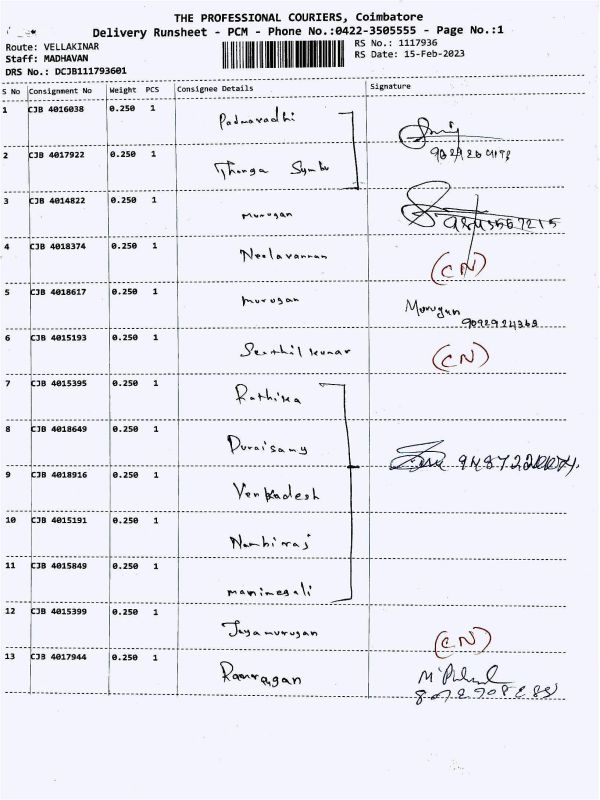 THE PROFESSIONAL COURIERS, Coimbatore
Delivery Runsheet - PCM - Phone No.:0422-3505555 - Page No.:1
Route: VELLAKINAR
RS No.: 1117936
Staff: MADHAVAN
RS Date: 15-Feb-2023
DRS No.: DCJB111793601
S No Consignment No Weight PCS Consignee Details Signature
1 CJB 4016038 0.250 1 Padmavadhi
2 CJB 4017922 0.250 1 Thanga
3 CJB 4014822 0.250 1 murugan
4 CJB 4018374 0.250 1 Neelavannan (CN)
5 CJB 4018617 0.250 1 murugan Murugan
9092924363
6 CJB 4015193 0.250 1 Senthil kumar (CN)
7 CJB 4015395 0.250 1 Rathika
8 CJB 4018649 0.250 1 Duraisamy
9 CJB 4018916 0.250 1 Venkadesh
10 CJB 4015191 0.250 1 Nambiraj
11 CJB 4015849 0.250 1 manimegali
12 CJB 4015399 0.250 1 Jeyamurugan (CN)
13 CJB 4017944 0.250 1